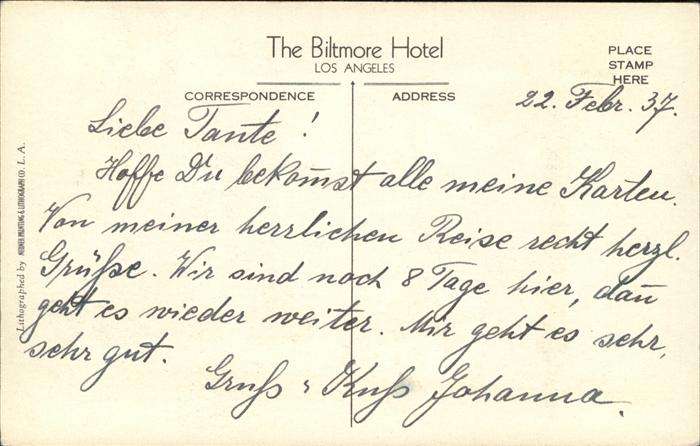 The Biltmore Hotel
LOS ANGELES
PLACE
STAMP
HERE
CORRESPONDENCE
ADDRESS
22. Febr. 37.
Liebe Tante!
Hoffe Du bekom̄st alle meine Karten.
Von meiner herrlichen Reise recht herzl.
Grüße. Wir sind noch 8 Tage hier, dan̄
geht es wieder weiter. Mir geht es sehr,
sehr gut.
Gruß u Kuß Johanna.
Lithographed by L. A.